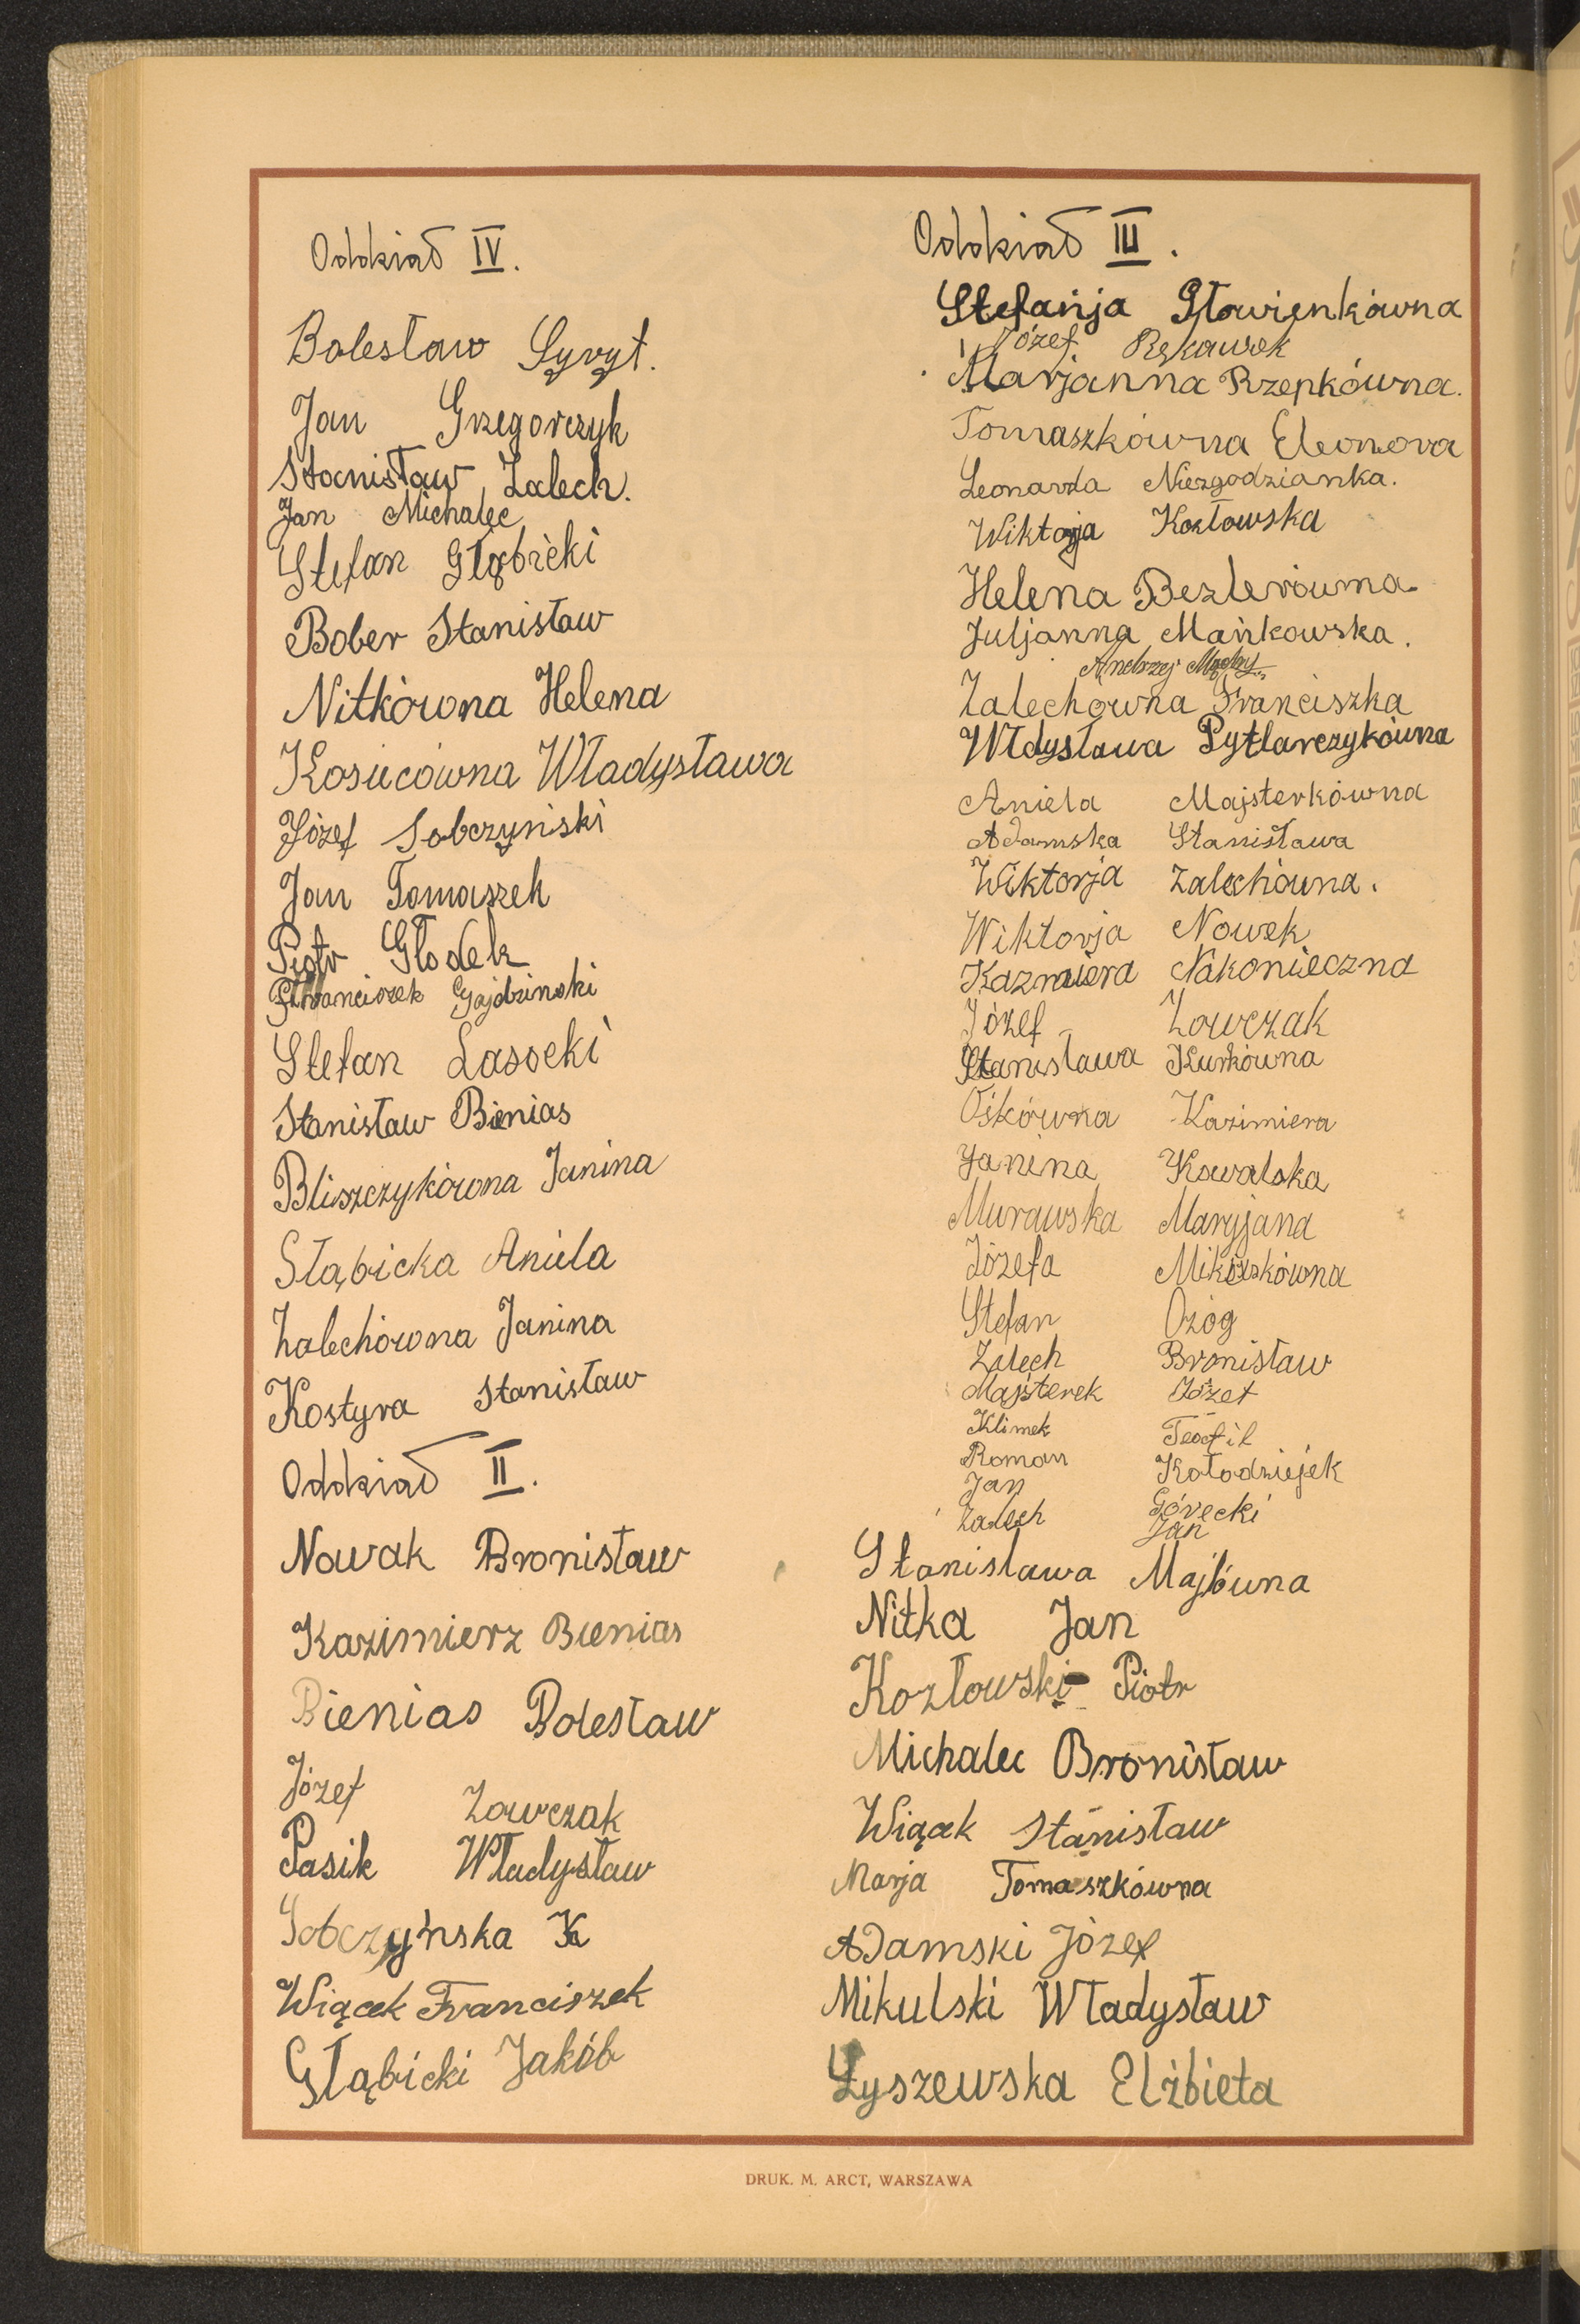 Oddział IV.
Bolesław Syryt.
Jan Grzegorczyk
Stanisław Zalech.
Jan Michalec
Stefan Głąbicki
Bober Stanisław
Nitkówna Helena
Kosucówna Władysława
Józef Sobczyński
Jan Tomaszek
Piotr Głodek
Franciszek Gajdzinski
Stefan Lasocki
Stanisław Bienias
Bliszczykówna Janina
Słąbicka Aniela
Zalechówna Janina
Kostyra Stanisław
Oddział II.
Nowak Bronisław
Kazimierz Bienias
Bienias Bolesław
Józef Zowczak
Pasik Władysław
Sobczyńska K
Wiącek Franciszek
Głąbicki Jakób
Oddział III.
Stefanja Głowienkówna
Józef Rękawek
Marjanna Rzepkówna.
Tomaszkówna Eleonora
Leonarda Niezgodzianka.
Wiktorja Kozłowska
Helena Bezlerówna
Juljanna Mańkowska.
Andrzej
Zalechówna Franciszka
Włdysława Pytlarczykówna
Aniela Majsterkówna
Adamska Stanisława
Wiktorja Zalechówna.
Wiktorja Nowek
Kazmiera Nakonieczna
Józef Zowczak
Stanisława Kurkówna
Ośkówna Kazimiera
Janina Kowalska
Murawska Maryjana
Józefa
Stefan Ożóg
Zalech Bronisław
Majsterek Józef
Klimek Teofil
Roman Kołodziejek
Jan Górecki
Zalech Jan
Stanisława Majówna
Nitka Jan
Kozłowski Piotr
Michalec Bronisław
Wiącek Stanisław
Marja Tomaszkówna
Adamski Józef
Mikulski Władysław
Łyszewska Elżbieta
DRUK. M. ARCT, WARSZAWA